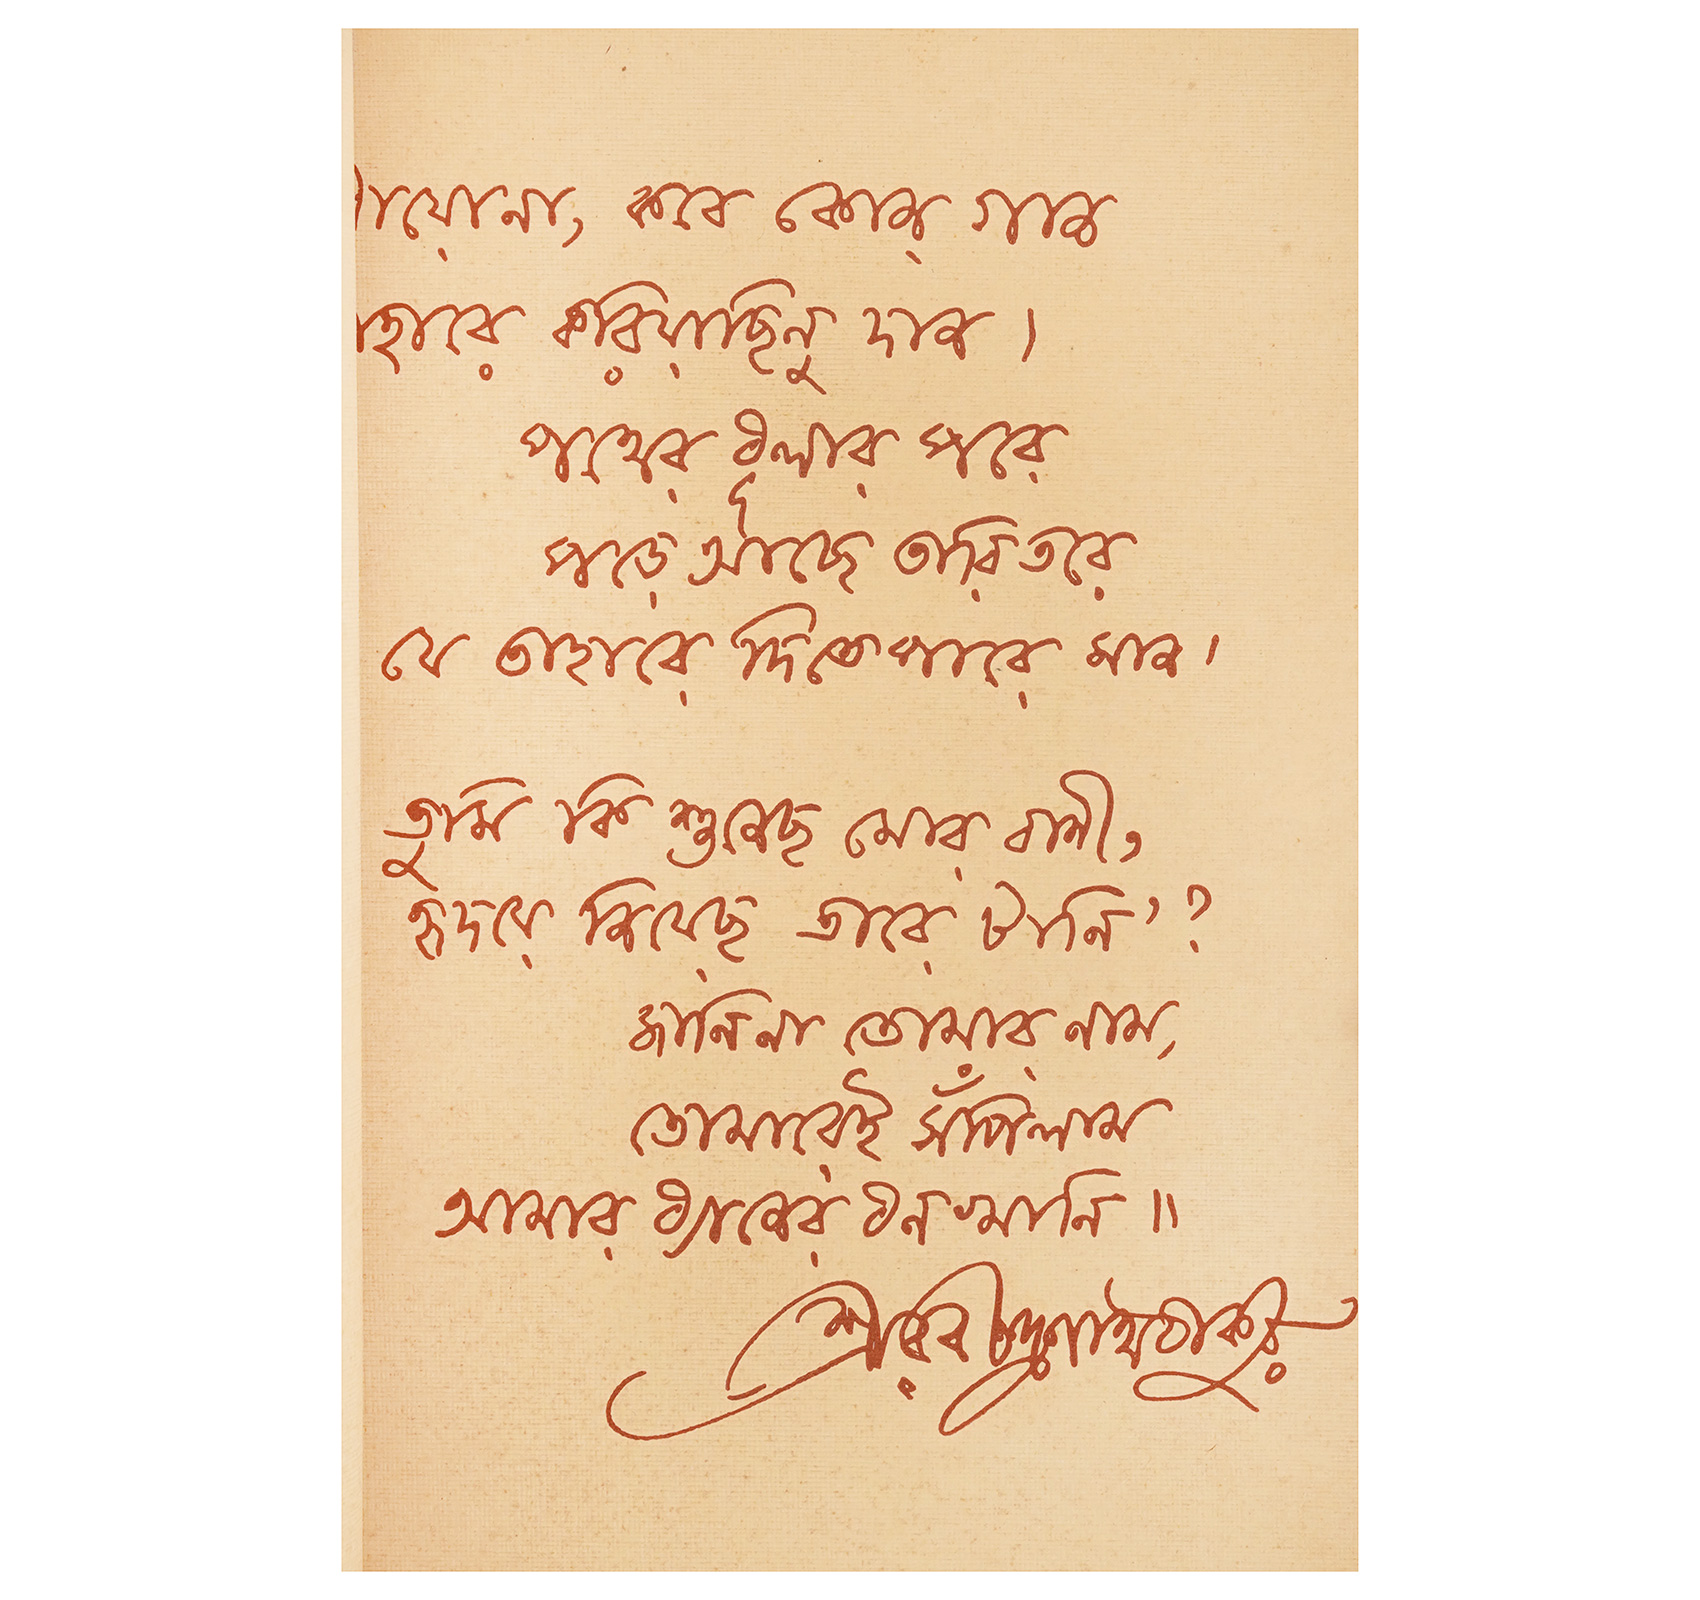 যায়োনা, কবে কোন্ গান
কাহারে করিয়াছিনু দান।
পথের ধূলার পরে
পড়ে আছে তারি তরে
যে তাহারে দিতে পারে মান।
তুমি কি শুনেছ মোর বাণী,
হৃদয়ে নিয়েছ তারে টানি'?
জানিনা তোমার নাম,
তোমারেই সঁপিলাম
আমার ধ্যানের ধনখানি॥
শ্রীরবীন্দ্রনাথ ঠাকুর